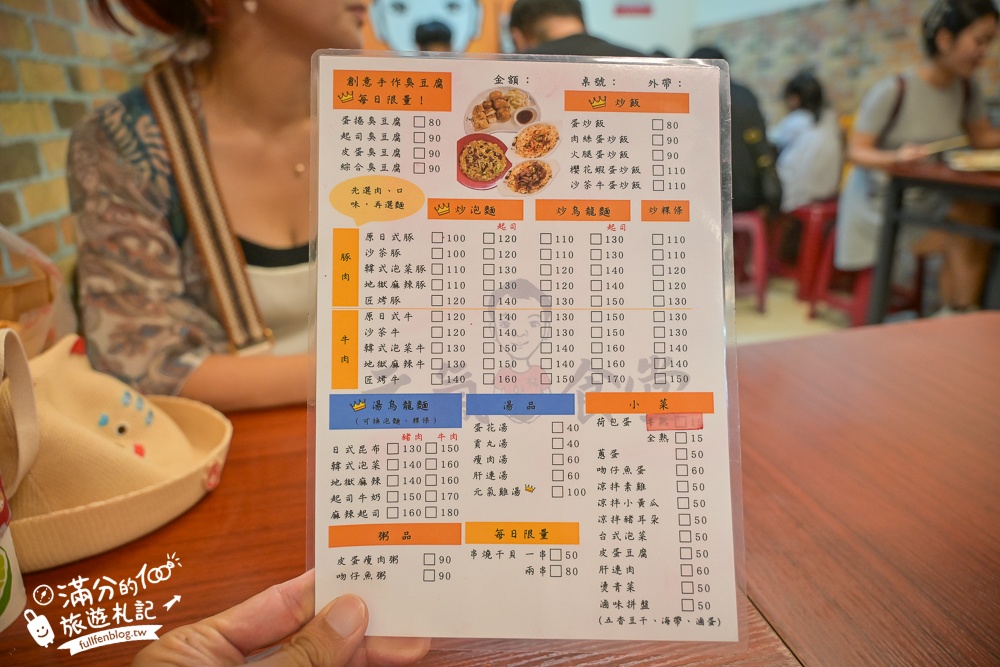 創意手作臭豆腐
每日限量！
金額： 桌號： 外帶：
蛋捲臭豆腐 80
起司臭豆腐 90
皮蛋臭豆腐 90
綜合臭豆腐 90
炒飯
蛋炒飯 80
肉絲蛋炒飯 90
火腿蛋炒飯 90
櫻花蝦蛋炒飯 110
沙茶牛蛋炒飯 110
先選肉、口
味，再選麵
炒泡麵 炒烏龍麵 炒粿條
起司 起司
豚肉
原日式豚 100 120 110 130 110
沙茶豚 100 120 110 130 110
韓式泡菜豚 110 130 120 140 120
地獄麻辣豚 110 130 120 140 120
匠烤豚 120 140 130 150 130
牛肉
原日式牛 120 140 130 150 130
沙茶牛 120 140 130 150 130
韓式泡菜牛 130 150 140 160 140
地獄麻辣牛 130 150 140 160 140
匠烤牛 140 160 150 170 150
湯烏龍麵
(可換泡麵、粿條)
豬肉 牛肉
日式昆布 130 150
韓式泡菜 140 160
地獄麻辣 140 160
起司牛奶 150 170
麻辣起司 160 180
湯品
蛋花湯 40
貢丸湯 40
瘦肉湯 60
肝連湯 60
元氣雞湯 100
小菜
荷包蛋 半熟
全熟 15
蔥蛋 50
吻仔魚蛋 60
涼拌素雞 50
涼拌小黃瓜 50
涼拌豬耳朵 50
台式泡菜 50
皮蛋豆腐 50
肝連肉 60
燙青菜 50
滷味拼盤 50
(五香豆干、海帶、滷蛋)
粥品
皮蛋瘦肉粥 90
吻仔魚粥 90
每日限量
串燒干貝 一串 50
兩串 80
滿分的100
旅遊札記
fullfenblog.tw